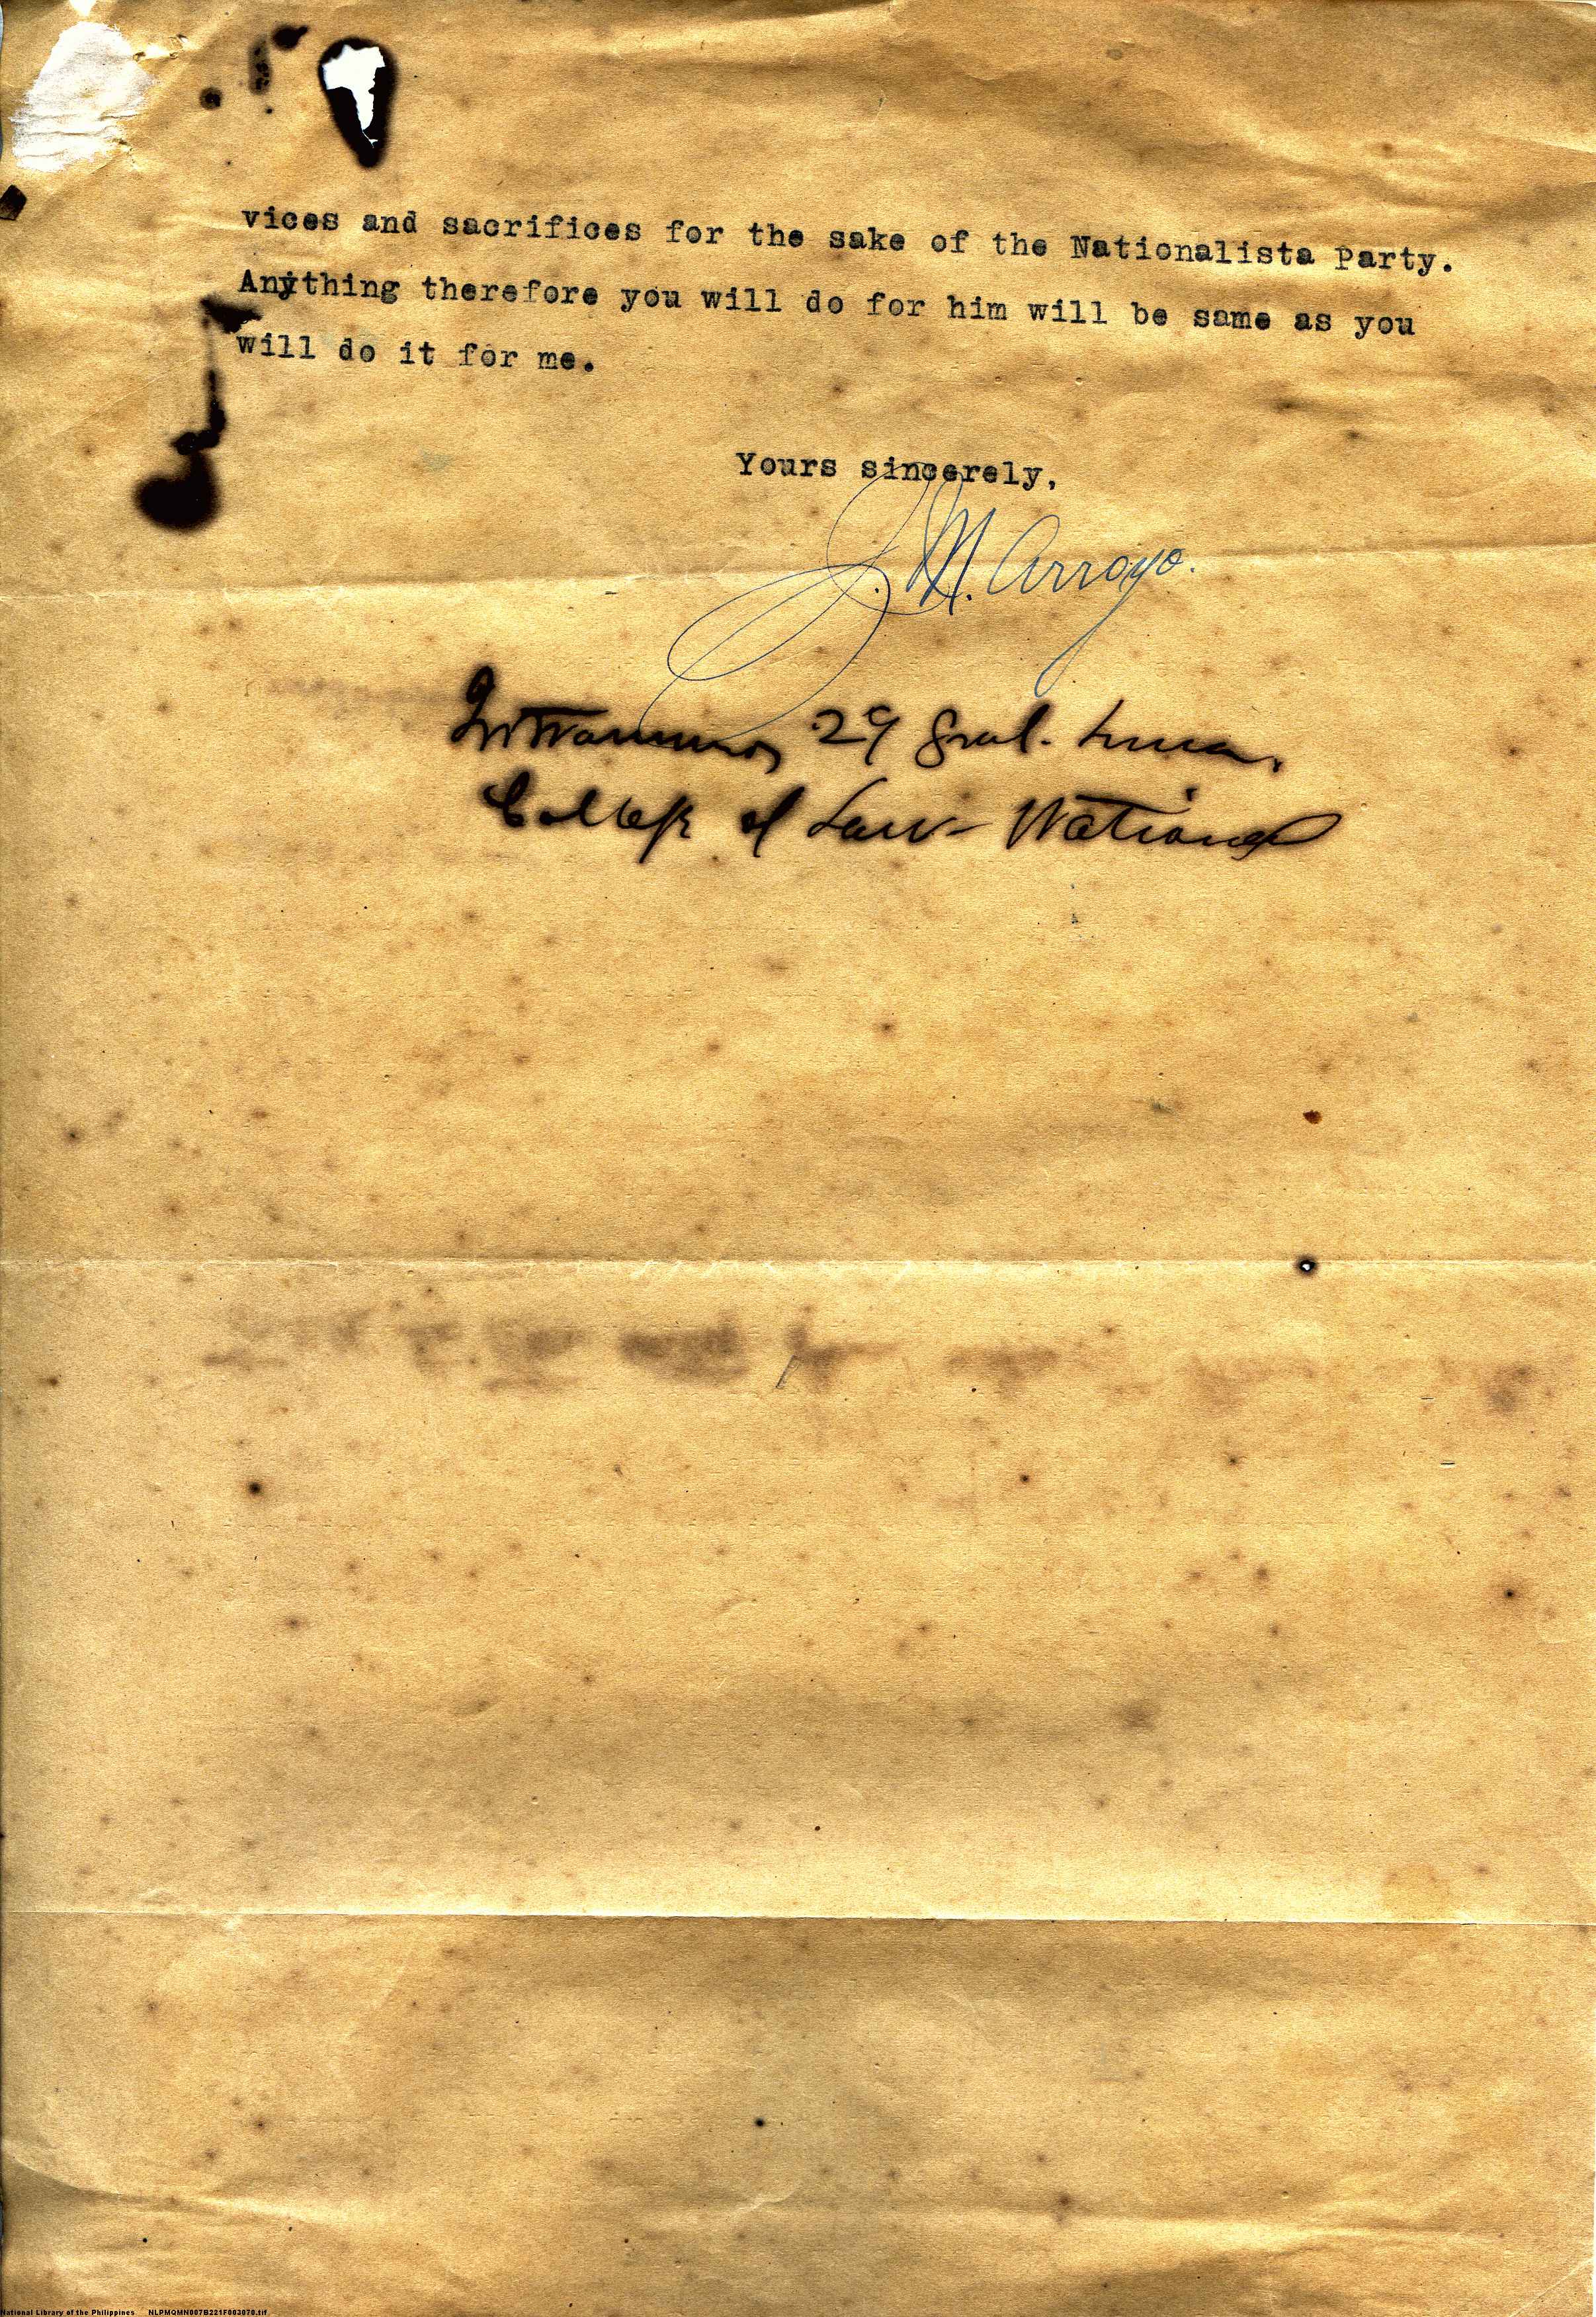 vices and sacrifices for the sake of the Nationalista Party.
Anything therefore you will do for him will be same as you
will do it for me.
Yours sincerely,
J. M. Arroyo.
Intramuros, 29 Gral. Luna,
College of Law - National
National Library of the Philippines NLPMQMN007B221F003070.tif